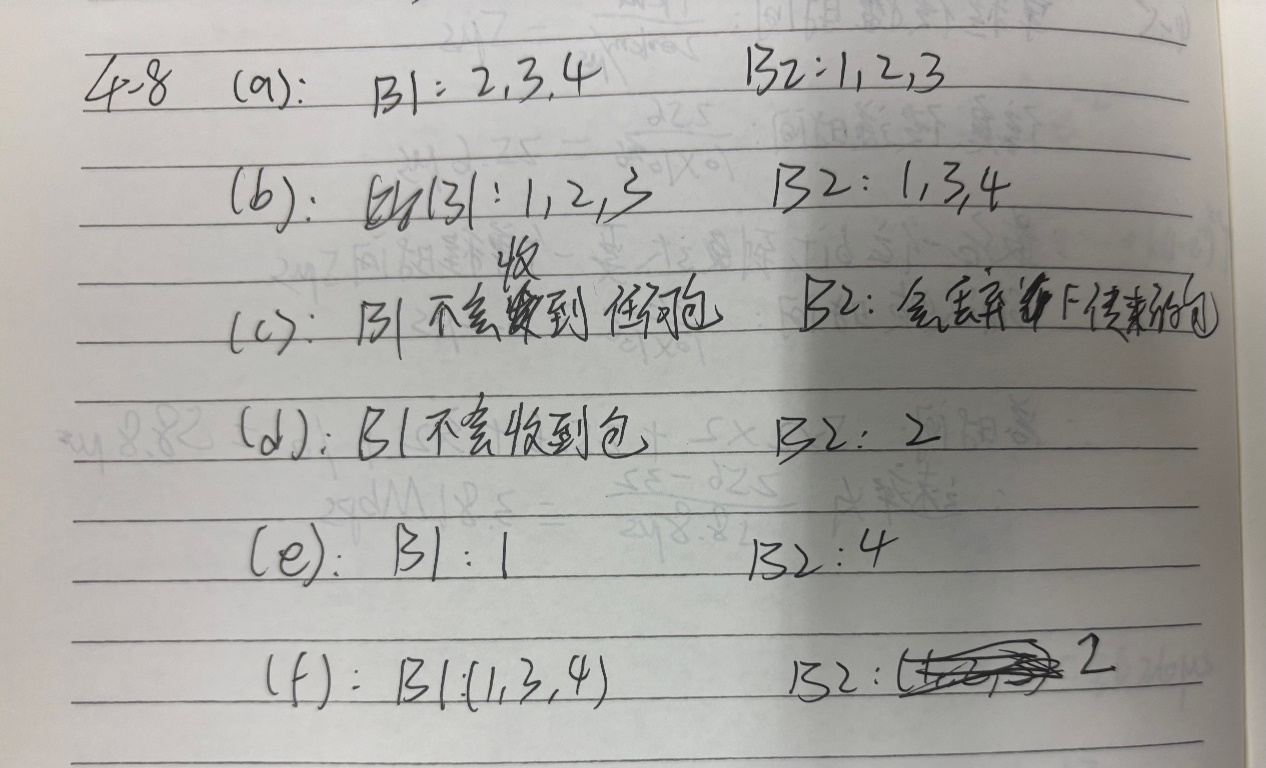 4-8 (a): B1: 2,3,4 B2: 1,2,3
(b): B1: 1,2,3 B2: 1,3,4
收
(c): B1 不会到任何包 B2: 会丢弃 F传来的包
(d): B1不会收到包 B2: 2
(e): B1: 1 B2: 4
(f): B1:(1,3,4) B2: 2